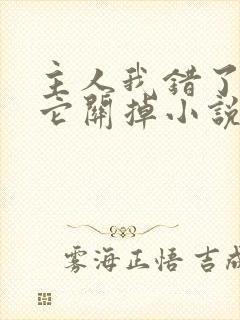 主人我错了
它關掉小說
雾海正悟 吉成